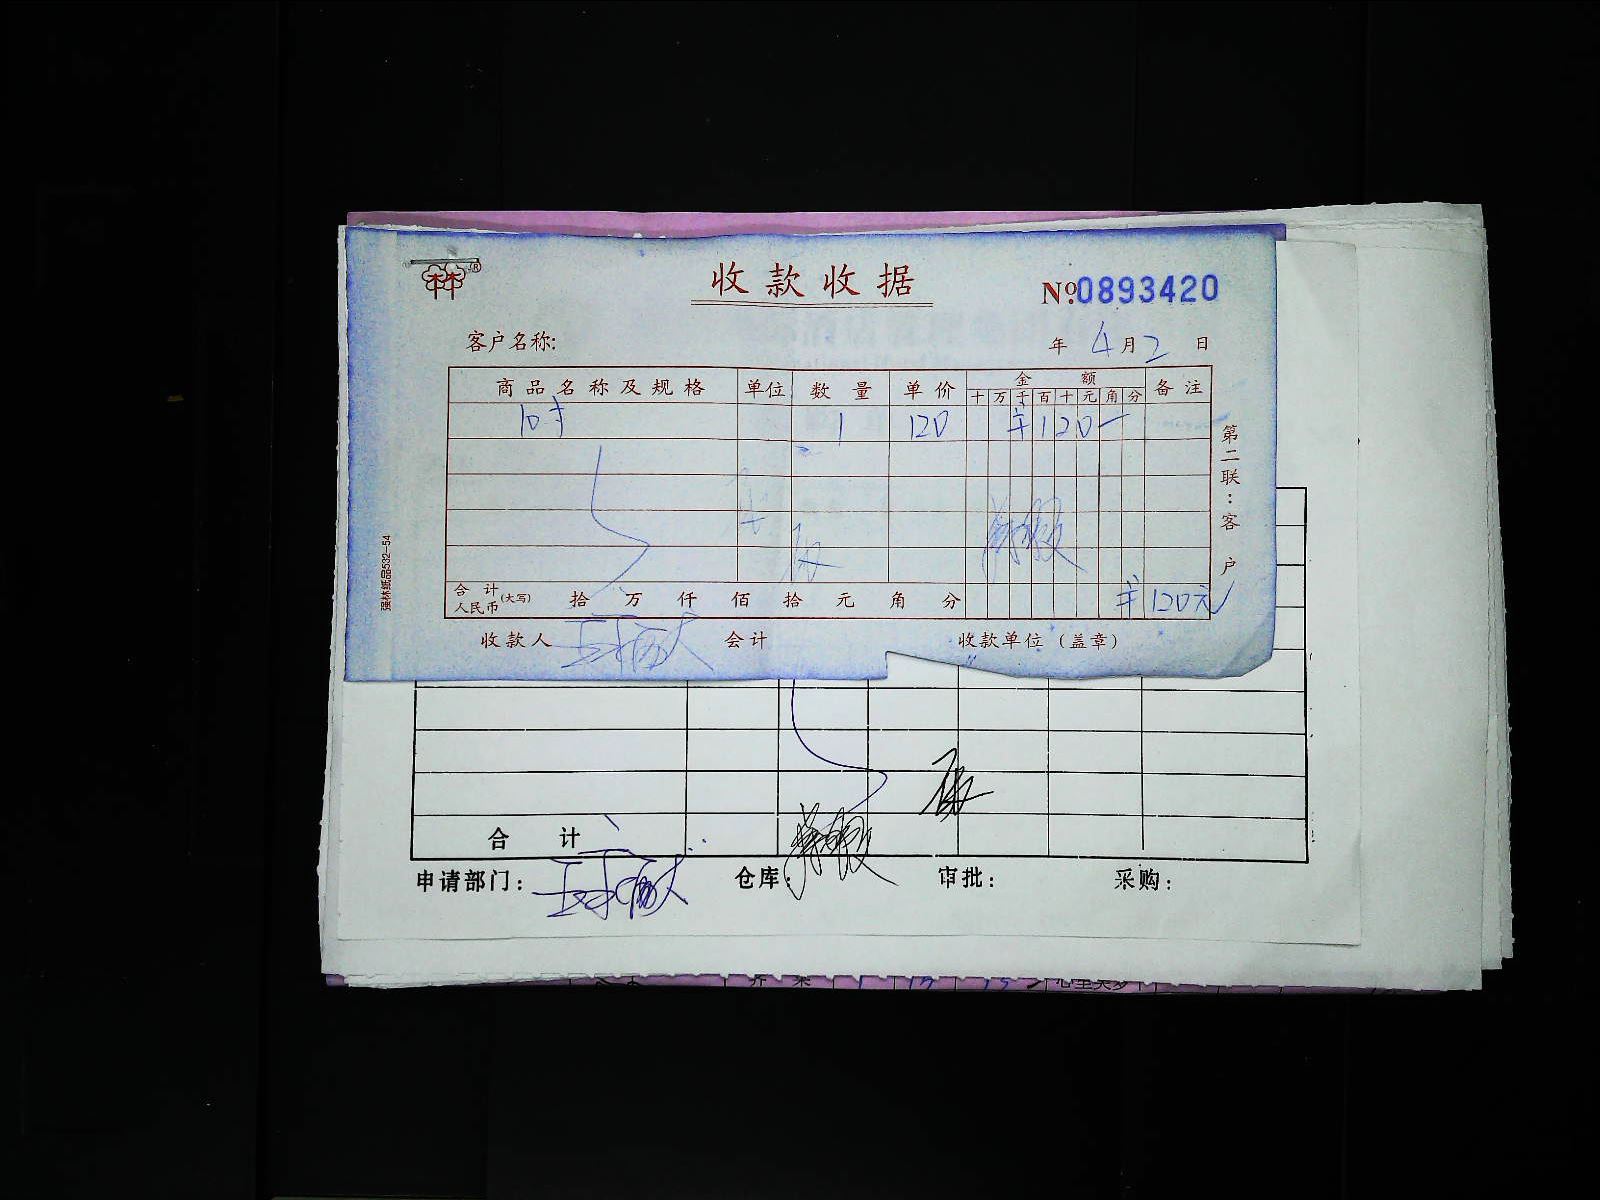 收款收据
№0893420
客户名称: 年 4月2 日
商品名称及规格 单位 数量 单价 金额 备注
十万千百十元角分
10寸 1 120 ¥120-
第二联:客户
强林纸品532-54
合计人民币(大写) 拾 万 仟 佰 拾 元 角 分 ¥120元
收款人 会计 收款单位(盖章)
合 计
申请部门: 仓库: 审批: 采购: